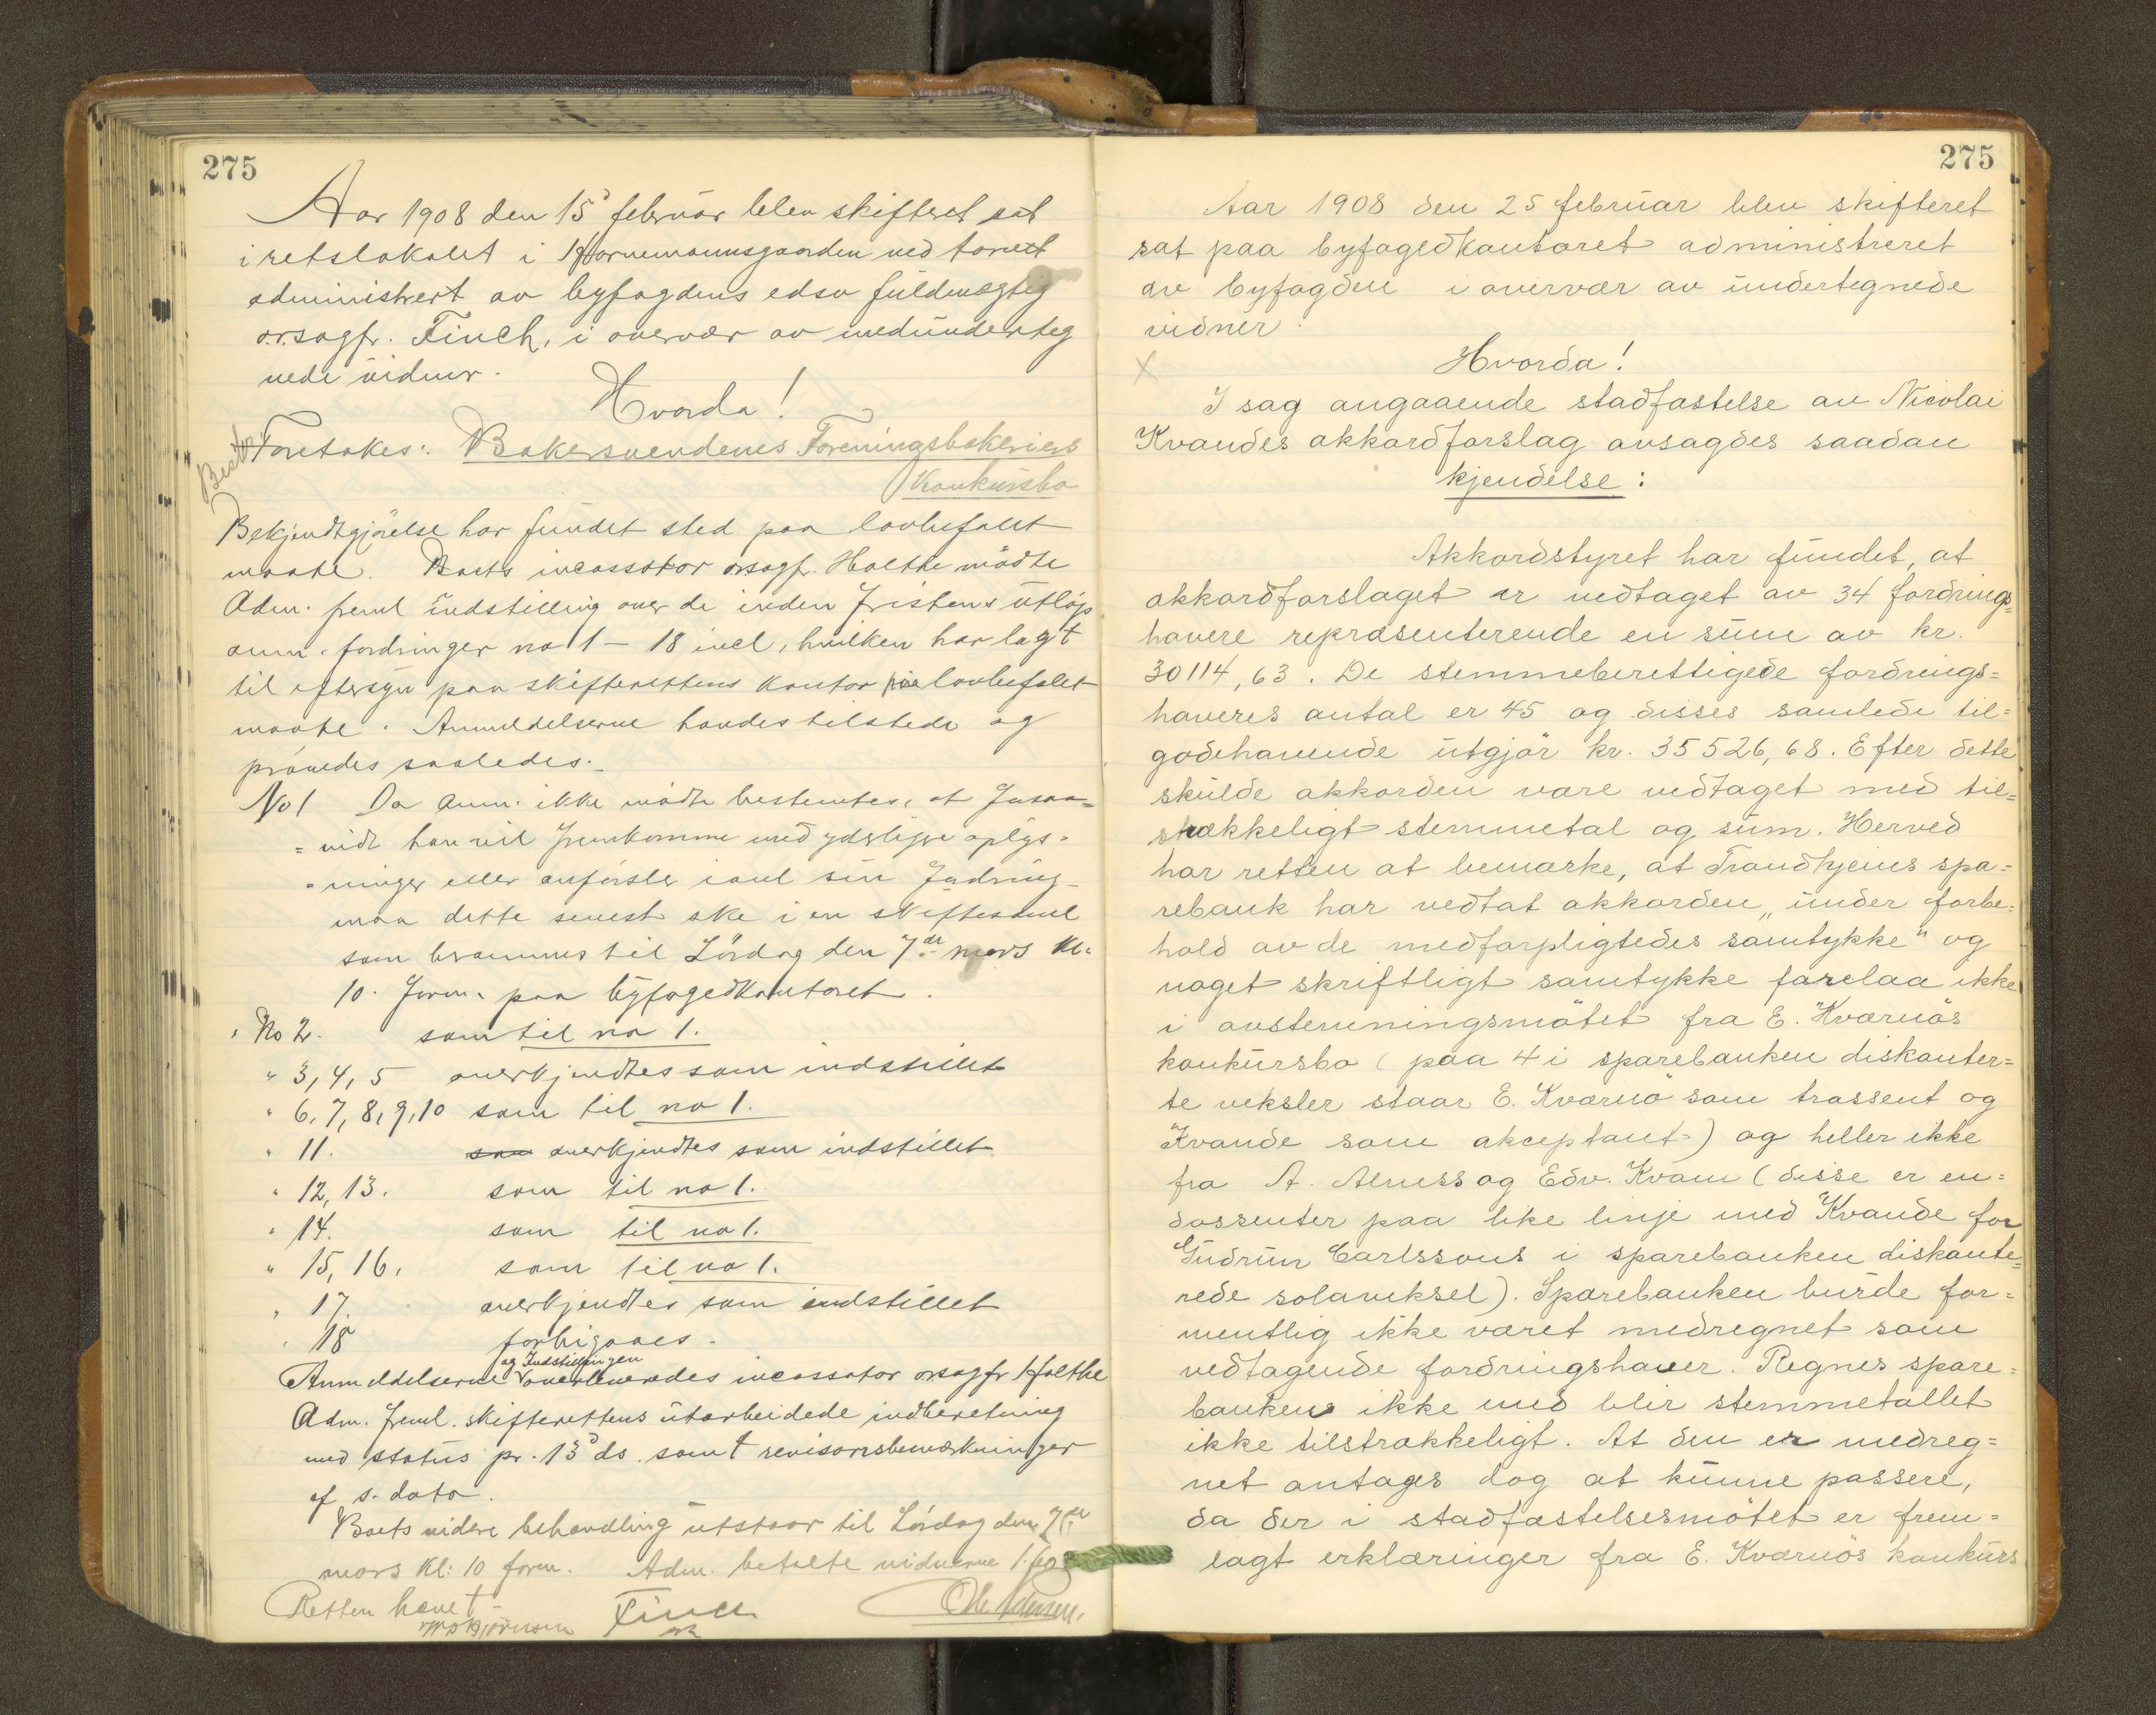 275
Aar 1908 den 15' februar blev skifteret sat
i retslokalet i Hornemannsgaarden ved torvet
administrert av byfogdens edsv fuldmægtig
o.r.sagfr. Finch, i overvær av medunderteg
nede vidner.
Hvorda!
Foretokes: Bakersvendenes Foreningsbakeriers
Konkursbo
Bekjendtgjörelse har fundet sted paa lovbefalet
maate. Boets incassator orsagfr. Holthe mödte
Adm. freml indstilling over de inden fristens utlöp
anm. fordringer no 1 - 18 incl, hvilken har lagt
til eftersyn paa skifterettens kontor paa lovbefalet
maate. Anmeldelserne havdes tilstede og
prövedes saaledes.
No 1 Da anm. ikke mödte bestemtes, at forsaa=
=vidt han vil fremkomme med yderligere oplys=
=ninger eller anförsler i anl sin fordring
maa dette senest ske i en skiftesaml
som berammes til Lördag den 7de mars Kl.
10. form. paa byfogedkontoret.
No 2. som til no 1.
" 3, 4, 5 anerkjendtes som indstillet
" 6, 7, 8, 9, 10 som til no 1.
" 11. som anerkjendtes som indstillet
" 12, 13. som til no 1.
" 14. som til no 1.
" 15, 16. som til no 1.
" 17. anerkjendtes som indstillet
" 18 forbigaaes.
og Indstillingen
Anmeldelserne overleveredes incassator orsagfr Holthe
Adm. freml. skifterettens utarbeidede indberetning
med status pr. 13' ds. samt revisorsbemærkninger
af s. dato.
Boets videre behandling utstaar til Lördag den 7de
mars Kl: 10 form. Adm. betalte vidnerne 1.60
Retten hævet
Finch
275
Aar 1908 den 25 februar blev skifteret
sat paa byfogedkontoret administreret
av byfogden i overvær av undertegnede
vidner.
Hvorda!
I sag angaaende stadfæstelse av Nicolai
Kvandes akkordforslag avsagdes saadan
kjendelse:
Akkordstyret har fundet, at
akkordforslaget er vedtaget av 34 fordrings=
havere repræsenterende en sum av kr.
30114,63. De stemmeberettigede fordrings=
haveres antal er 45 og disses samlede til=
godehavende utgjör kr. 35526,68. Efter dette
skulde akkorden være vedtaget med til=
strækkeligt stemmetal og sum. Herved
har retten at bemærke, at Trondhjems spa=
rebank har vedtat akkorden „under forbe=
hold av de medforpligtedes samtykke" og
noget skriftligt samtykke forelaa ikke
i avstemningsmötet fra E. Kværnös
konkursbo (paa 4 i sparebanken diskonter=
te veksler staar E. Kværnö som trassent og
Kvande som akceptant) og heller ikke
fra A. Alness og Edv. Kvam (disse er en=
dossenter paa like linje med Kvande for
Gudrun Carlssons i sparebanken diskonte=
rede solaveksel). Sparebanken burde for=
mentlig ikke været medregnet som
vedtagende fordringshaver. Regnes spare=
banken ikke med blir stemmetallet
ikke tilstrækkeligt. At den er medreg=
net antages dog at kunne passere,
da der i stadfæstelsesmötet er frem=
lagt erklæringer fra E. Kværnös konkurs